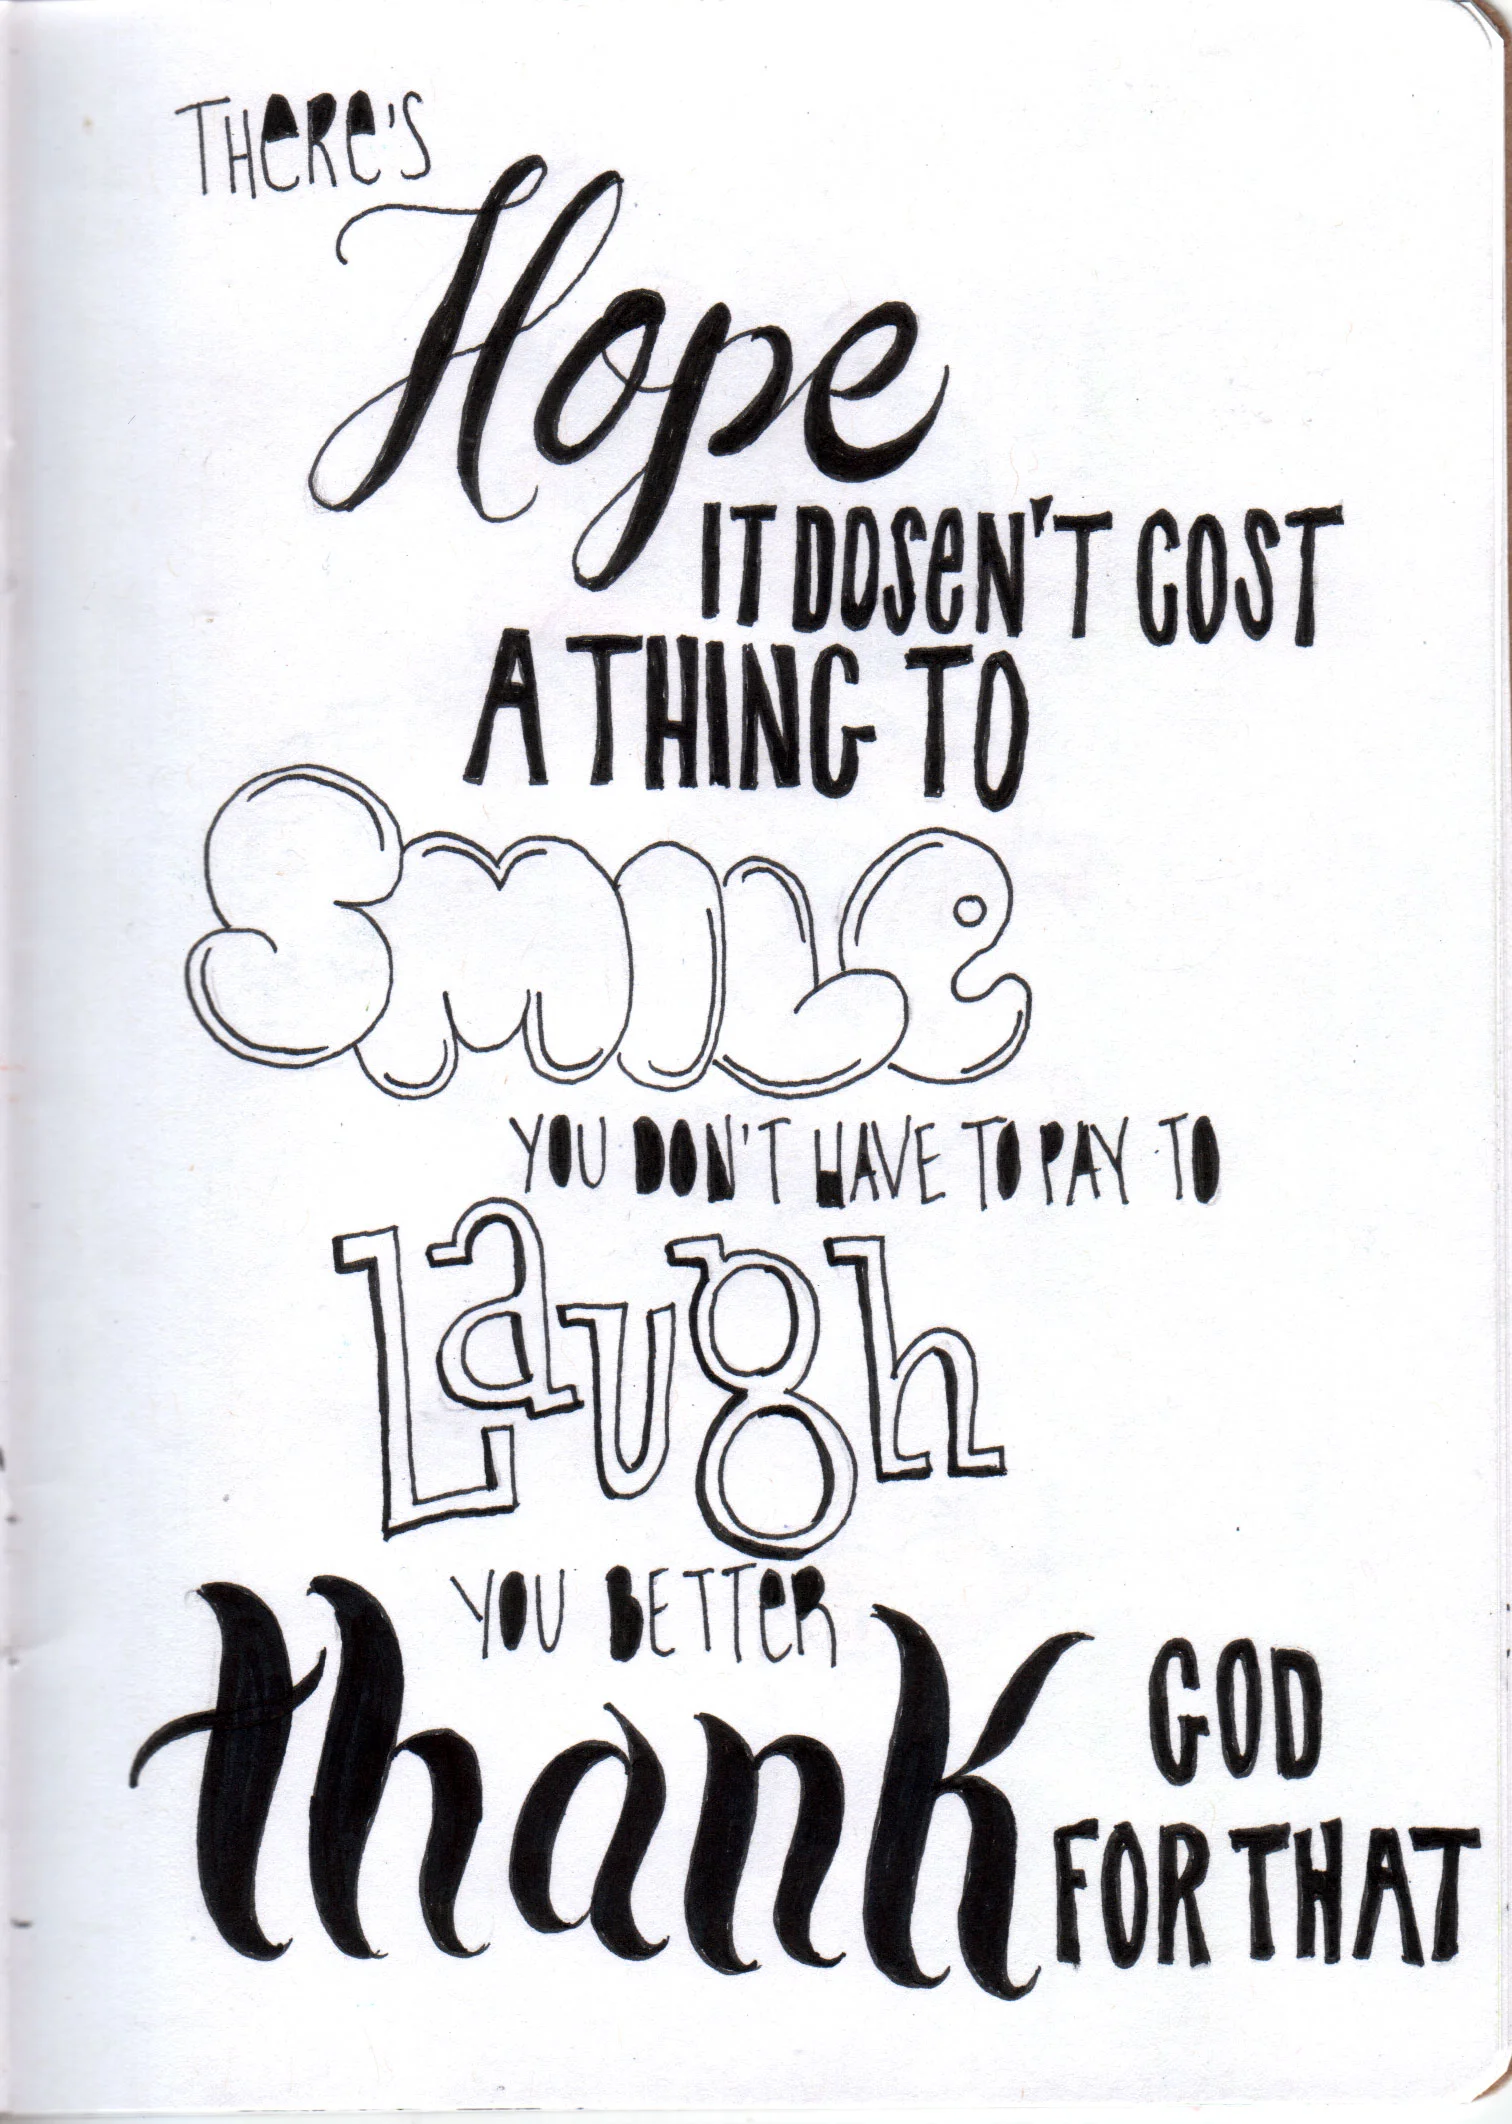 THeRe'S
Hope
IT DOSeN'T COST
A THING TO
SMILe
YOU DON'T HAVE TO PAY TO
Laugh
YOU BETTeR
thank GOD
FOR THAT